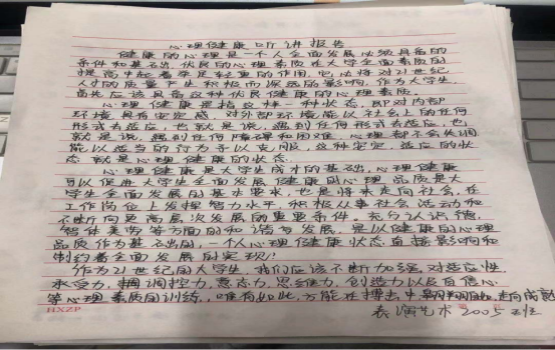 心理健康听讲报告
健康的心理是一个人全面发展必须具备的
条件和基础，优良的心理素质在大学全面素质的
提高中起着举足轻重的作用，它必将对21世纪
人才的质量产生积极而深远的影响，作为大学生
首先应该具备这种优良健康的心理素质。
心理健康是指这样一种状态，即对内部
环境具有安定感，对外部环境能以社会上的任何
形式去适应，也就是说，遇到任何形式去适应，也
就是说，遇到任何障碍和困难，心理都不会失调
能以适当的行为予以克服，这种安定、适应的状
态就是心理健康的状态。
心理健康是大学生成才的基础，心理健康
可以促进大学生全面发展健康的心理品质是大
学生全面发展的基本要求，也是将来走向社会，在
工作岗位上发挥智力水平，积极从事社会活动和
不断向更高层次发展的重要条件。充分认识德，
智体美劳等方面的和谐与发展，是以健康的心理
品质作为基础的，一个人心理健康状态直接影响和
制约着全面发展的实现！
作为21世纪的大学生，我们应该不断加强对适应性，
承受力，调控力，意志力，思维力，创造力以及自信心
等心理素质的训练，唯有如此，方能在搏击中翱翔，走向成就
表演艺术2005班
HXZP